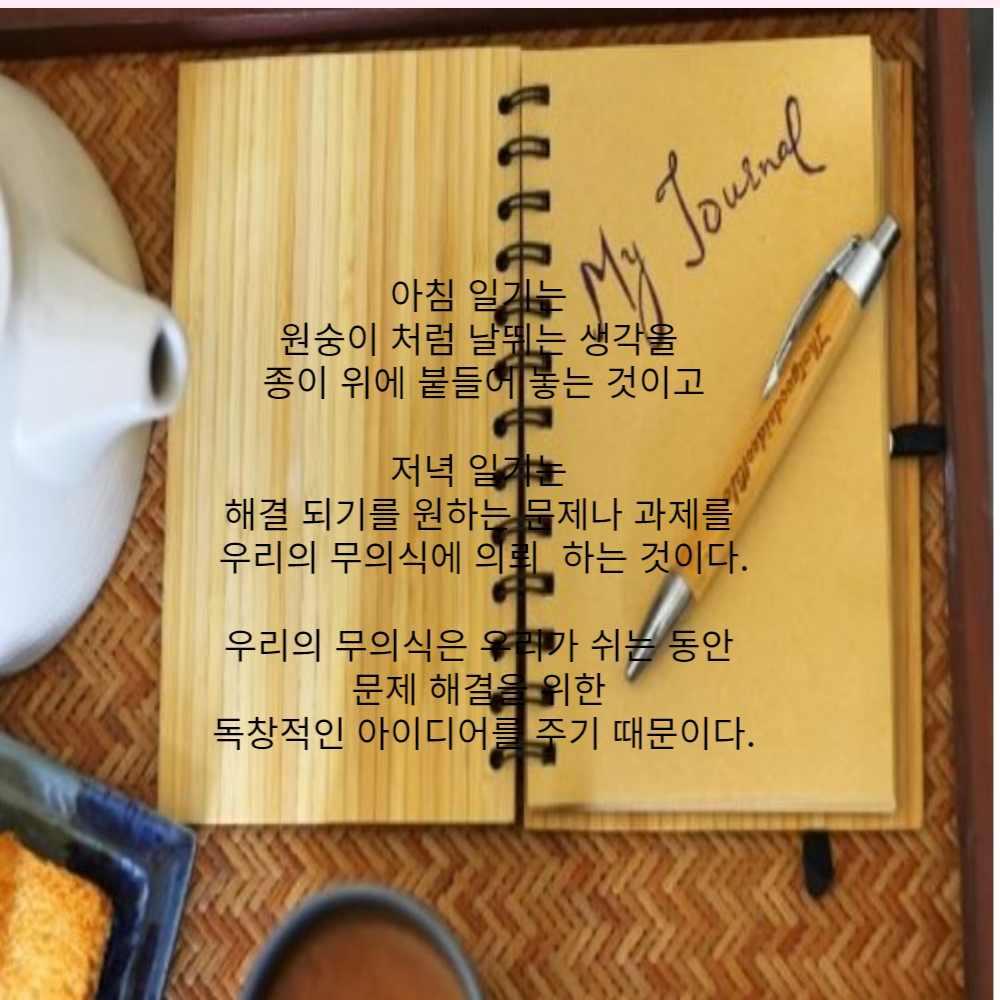 My Journal
아침 일기는
원숭이 처럼 날뛰는 생각을
종이 위에 붙들어 놓는 것이고
저녁 일기는
해결 되기를 원하는 문제나 과제를
우리의 무의식에 의뢰  하는 것이다.
우리의 무의식은 우리가 쉬는 동안
문제 해결을 위한
독창적인 아이디어를 주기 때문이다.